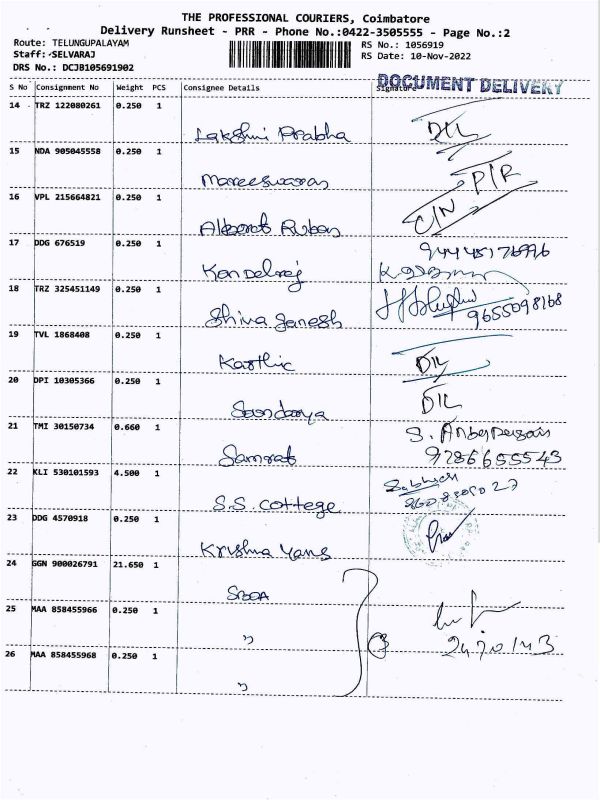 THE PROFESSIONAL COURIERS, Coimbatore
Delivery Runsheet - PRR - Phone No.:0422-3505555 - Page No.:2
Route: TELUNGUPALAYAM
Staff: SELVARAJ
DRS No.: DCJB105691902
RS No.: 1056919
RS Date: 10-Nov-2022
DOCUMENT DELIVERY
S No Consignment No Weight PCS Consignee Details Signature
14 TRZ 122080261 0.250 1
Lakshmi Prabha D/L
15 NDA 905045558 0.250 1
Mareeswaran P/R
16 VPL 215664821 0.250 1
C/N
17 DDG 676519 0.250 1
18 TRZ 325451149 0.250 1
Shiva Ganesh 9655098168
19 TVL 1868408 0.250 1
Karthic D/L
20 DPI 10305366 0.250 1
Soundarya D/L
21 TMI 30150734 0.660 1
Samrat 9286655543
22 KLI 530101593 4.500 1
S.S. Cottege
23 DDG 4570918 0.250 1
Krishna Yans
24 GGN 900026791 21.650 1
SBOA
25 MAA 858455966 0.250 1
"
26 MAA 858455968 0.250 1
"
3